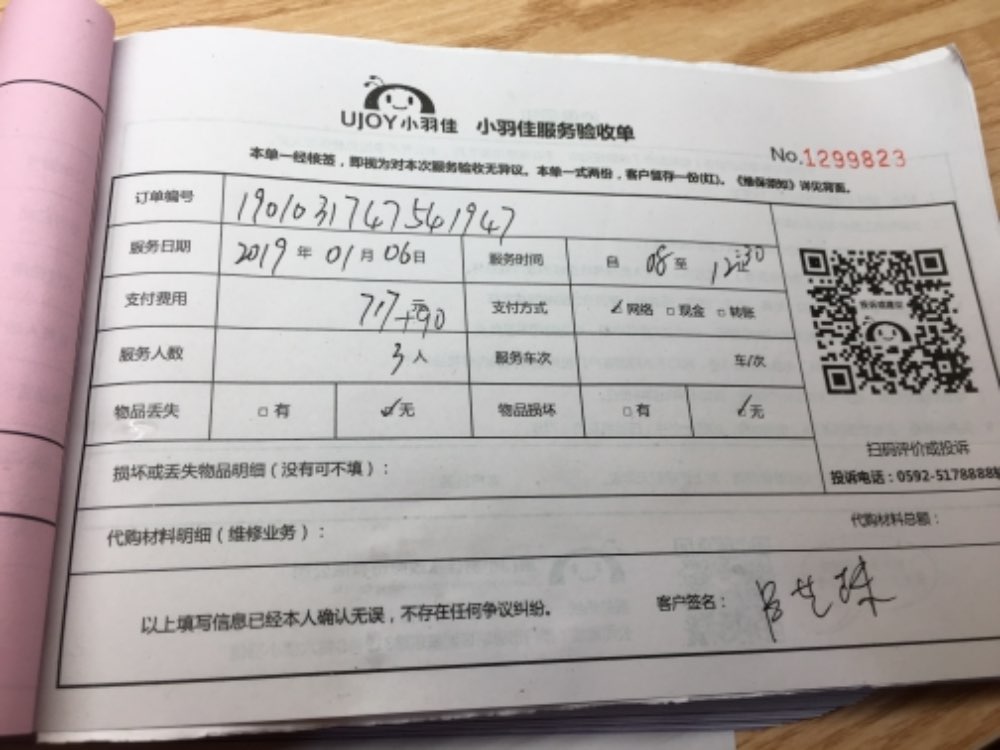 UJOY小羽佳 小羽佳服务验收单
No.1299823
本单一经核签，即视为对本次服务验收无异议。本单一式两份，客户留存一份(红)。《维保须知》详见背面。
订单编号 190103174754 1947
服务日期 2019 年 01 月 06 日 服务时间 自 08 至 12:30
支付费用 717元+90 支付方式 ☑网络 □现金 □转账
服务人数 3 人 服务车次 车/次
物品丢失 □有 ☑无 物品损坏 □有 ☑无
扫码评价或投诉
投诉电话：0592-5178888
损坏或丢失物品明细（没有可不填）：
代购材料明细（维修业务）： 代购材料总额：
以上填写信息已经本人确认无误，不存在任何争议纠纷。 客户签名：